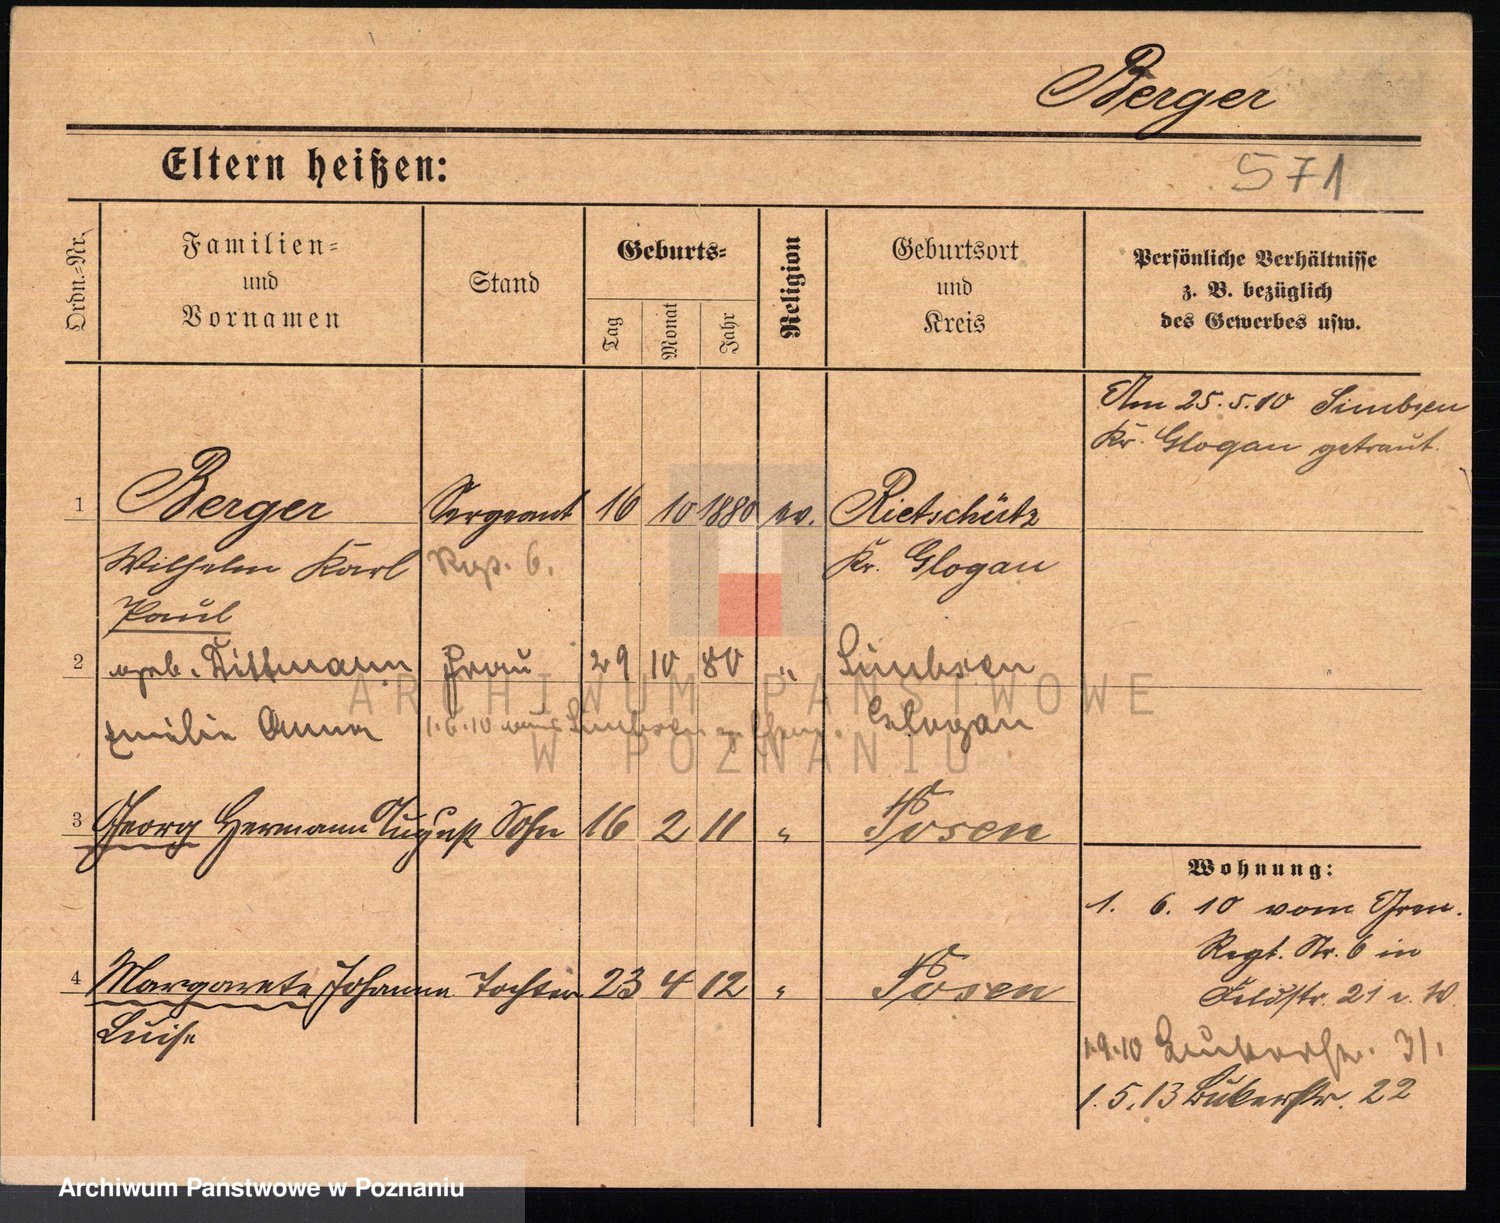 Berger
Eltern heißen:
571
Ordn.-Nr.
Familien-
und
Vornamen
Stand
Geburts-
Tag
Monat
Jahr
Religion
Geburtsort
und
Kreis
Persönliche Verhältnisse
z. B. bezüglich
des Gewerbes usw.
Am 25.5.10 Simbsen
Kr. Glogau getraut.
1 Berger Sergeant 16 10 1880 ev. Rietschütz
Wilhelm Karl Rgt. 6. Kr. Glogau
Paul
2 geb. Dittmann Frau 29 10 80 " Simbsen
Emilie Anna 1.6.10 aus Simbsen Glogau
3 Georg Hermann August Sohn 16 2 11 " Posen
Wohnung:
1. 6. 10 vom Gren.
Regt. Nr. 6 in
Feldstr. 21 e. W.
4 Margarete Johanna Tochter 23 4 12 " Posen
Luise
1.9.10 31
1.5.13 Bukerstr. 22
ARCHIWUM PAŃSTWOWE
W POZNANIU
Archiwum Państwowe w Poznaniu